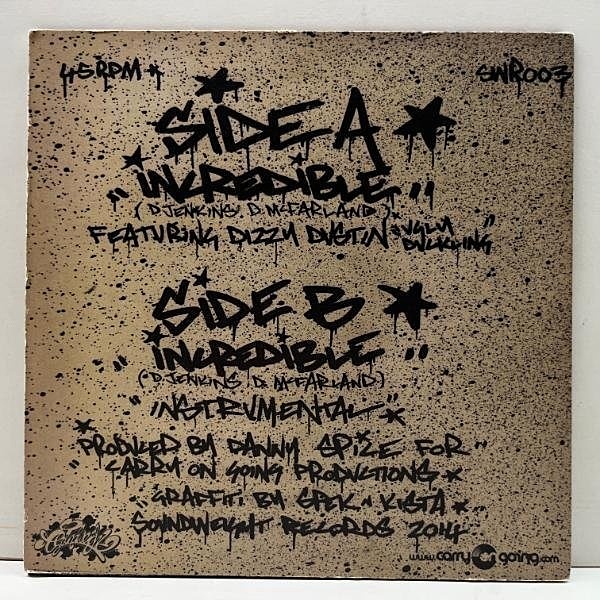 45RPM
SWR003
SIDE A
"INCREDIBLE"
(D.JENKINS, D. MCFARLAND)
FEATURING DIZZY DUSTIN "UGLY DUCKLING"
SIDE B
"INCREDIBLE"
(D.JENKINS, D. MCFARLAND)
"INSTRUMENTAL"
"PRODUCED BY DANNY SPICE FOR"
CARRY ON GOING PRODUCTIONS
"GRAFFITI BY SPEK N KISTA"
SOUNDWEIGHT RECORDS 2014
www.carryongoing.com